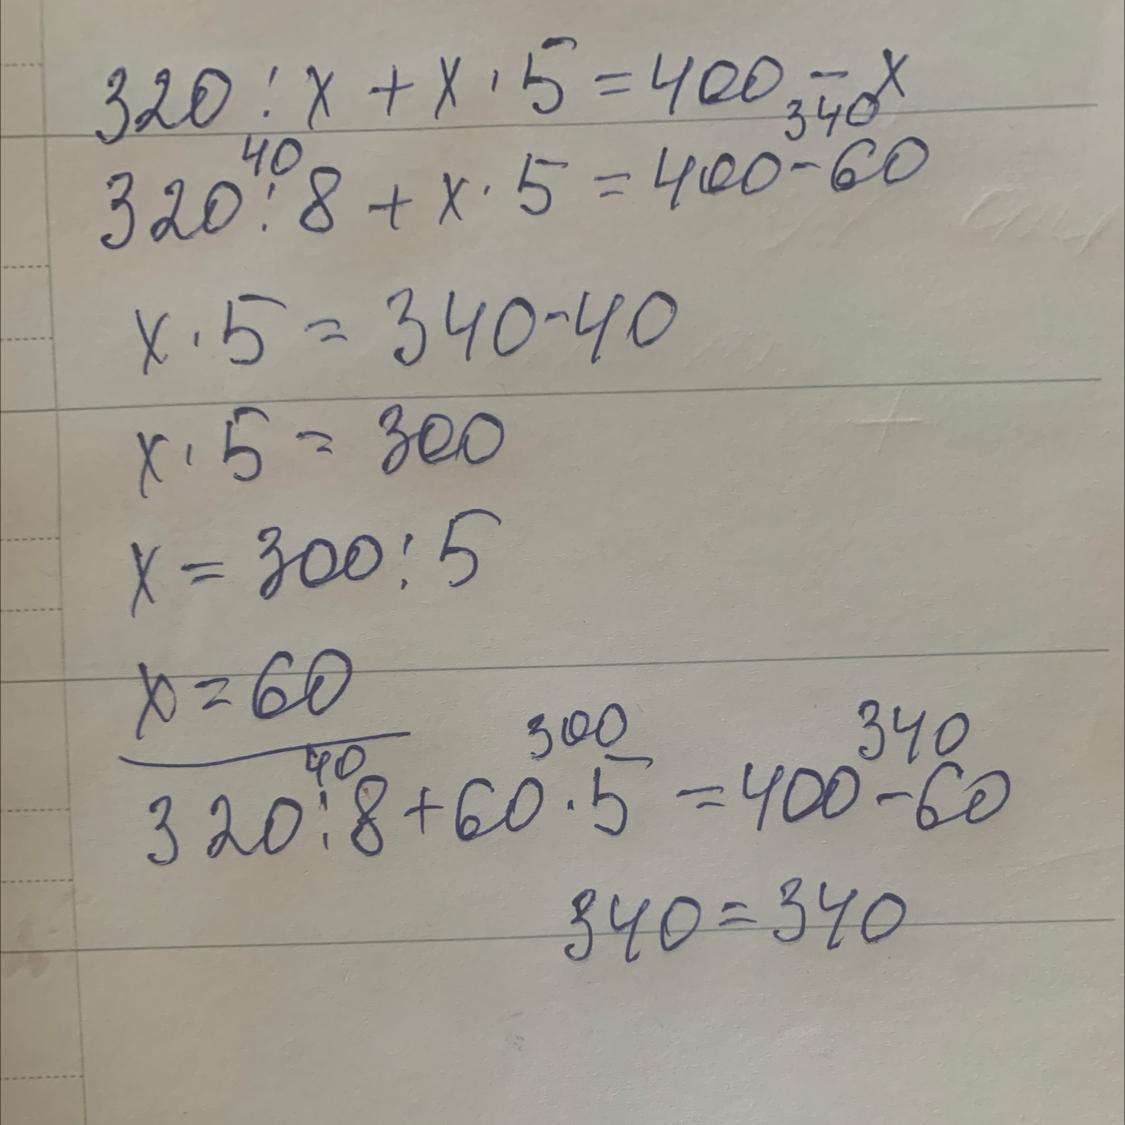 320 : x + x · 5 = 400 - x
40 340
320 : 8 + x · 5 = 400 - 60
x · 5 = 340 - 40
x · 5 = 300
x = 300 : 5
x = 60
40 300 340
320 : 8 + 60 · 5 = 400 - 60
340 = 340